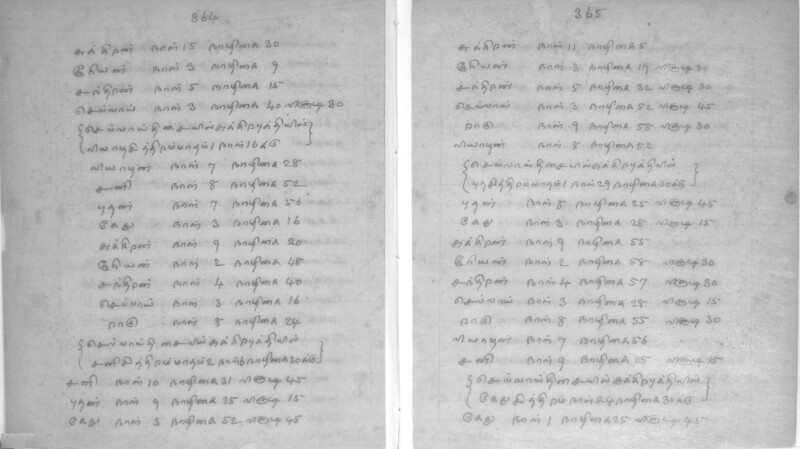 364
சுக்கிரன் நாள் 15 நாழிகை 30
சூரியன் நாள் 3 நாழிகை 9
சந்திரன் நாள் 5 நாழிகை 15
செவ்வாய் நாள் 3 நாழிகை 40 விநாடி 30
{செவ்வாய்திசையில் சுக்கிரபுத்தியில்}
{வியாழசித்திரம் மாதம் 1 நாள் 16க்கு}
வியாழன் நாள் 7 நாழிகை 28
சனி நாள் 8 நாழிகை 52
புதன் நாள் 7 நாழிகை 56
கேது நாள் 3 நாழிகை 16
சுக்கிரன் நாள் 9 நாழிகை 20
சூரியன் நாள் 2 நாழிகை 48
சந்திரன் நாள் 4 நாழிகை 40
செவ்வாய் நாள் 3 நாழிகை 16
ராகு நாள் 8 நாழிகை 24
{செவ்வாய்திசையில் சுக்கிரபுத்தியில்}
{சனிசித்திரம் மாதம் 2 நாள் 6 நாழிகை 30க்கு}
சனி நாள் 10 நாழிகை 31 விநாடி 45
புதன் நாள் 9 நாழிகை 25 விநாடி 15
கேது நாள் 3 நாழிகை 52 விநாடி 45
365
சுக்கிரன் நாள் 11 நாழிகை 5
சூரியன் நாள் 3 நாழிகை 19 விநாடி 30
சந்திரன் நாள் 5 நாழிகை 32 விநாடி 30
செவ்வாய் நாள் 3 நாழிகை 52 விநாடி 45
ராகு நாள் 9 நாழிகை 58 விநாடி 30
வியாழன் நாள் 8 நாழிகை 52
{செவ்வாய்திசையில் சுக்கிரபுத்தியில்}
{புதசித்திரம் மாதம் 1 நாள் 29 நாழிகை 30க்கு}
புதன் நாள் 8 நாழிகை 25 விநாடி 45
கேது நாள் 3 நாழிகை 28 விநாடி 15
சுக்கிரன் நாள் 9 நாழிகை 55
சூரியன் நாள் 2 நாழிகை 58 விநாடி 30
சந்திரன் நாள் 4 நாழிகை 57 விநாடி 30
செவ்வாய் நாள் 3 நாழிகை 28 விநாடி 15
ராகு நாள் 8 நாழிகை 55 விநாடி 30
வியாழன் நாள் 7 நாழிகை 56
சனி நாள் 9 நாழிகை 25 விநாடி 15
{செவ்வாய்திசையில் சுக்கிரபுத்தியில்}
{கேதுசித்திரம் நாள் 24 நாழிகை 30க்கு}
கேது நாள் 1 நாழிகை 25 விநாடி 45